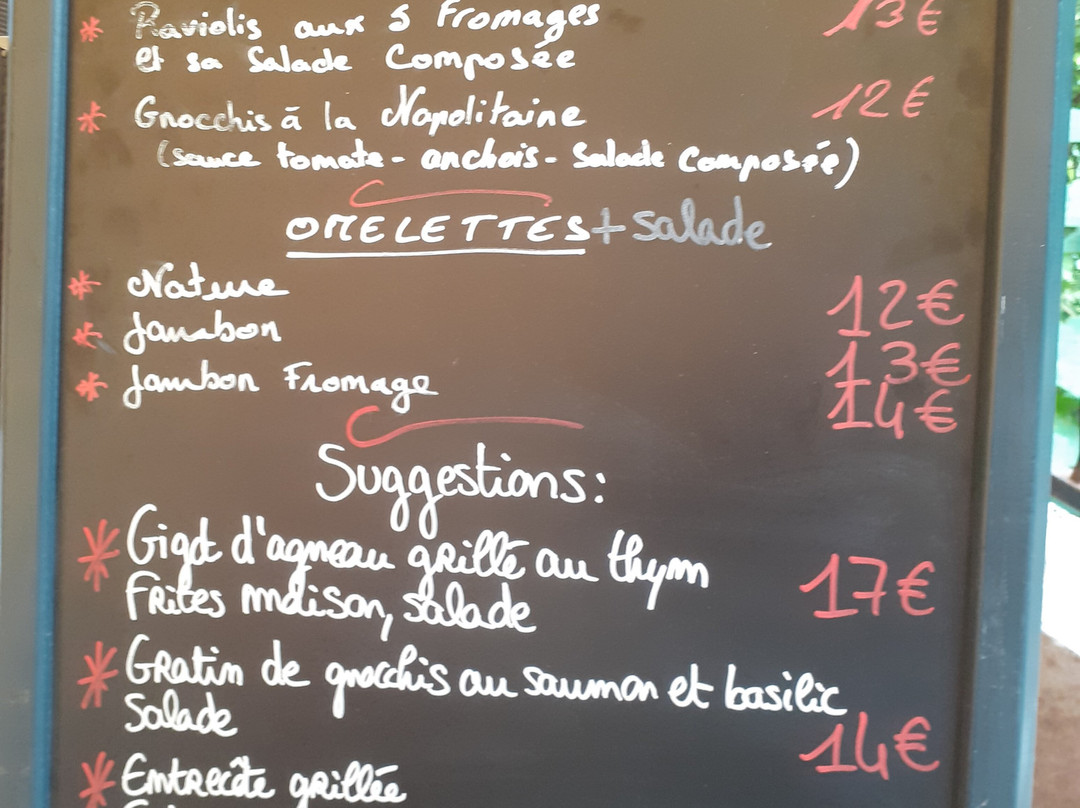 * Raviolis aux 5 Fromages 13€
et sa Salade Composée
* Gnocchis à la Napolitaine 12€
(sauce tomate - anchois - Salade Composée)
OMELETTES + salade
* Nature 12€
* Jambon 13€
* Jambon Fromage 14€
Suggestions:
* Gigot d'agneau grillé au thym
Frites maison, salade 17€
* Gratin de gnocchis au saumon et basilic
Salade 14€
* Entrecôte grillée